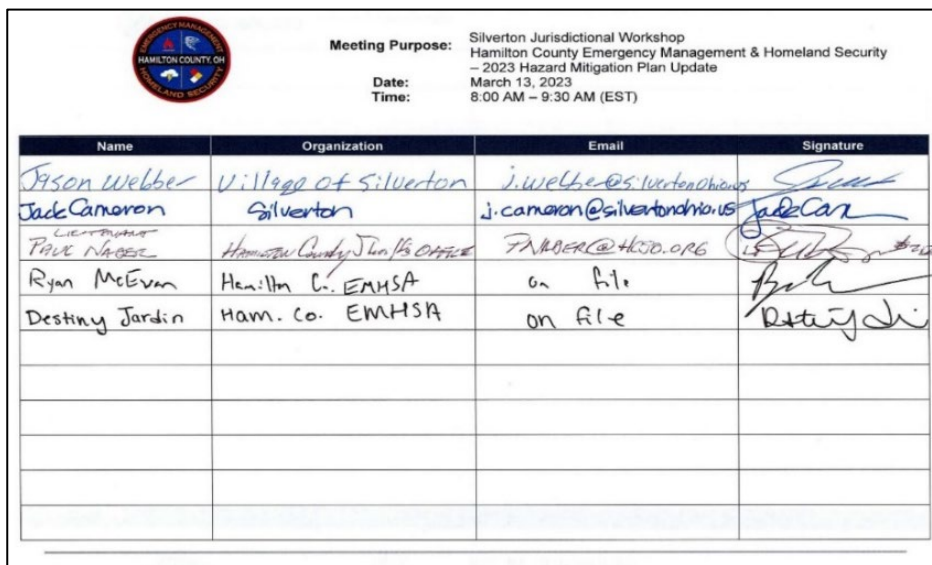 EMERGENCY MANAGEMENT
HAMILTON COUNTY, OH
HOMELAND SECURITY
Meeting Purpose: Silverton Jurisdictional Workshop
Hamilton County Emergency Management & Homeland Security
– 2023 Hazard Mitigation Plan Update
Date: March 13, 2023
Time: 8:00 AM – 9:30 AM (EST)
Name Organization Email Signature
Jason Webber Village of Silverton j.webber@silvertonohio.us
Jack Cameron Silverton j.cameron@silvertonohio.us Jack Cam
LIEUTENANT
PAUL NABER HAMILTON County Sheriff's OFFICE PNABER@HCSO.ORG
Ryan McEwan Hamilton Co. EMHSA on file
Destiny Jardin Ham. Co. EMHSA on file